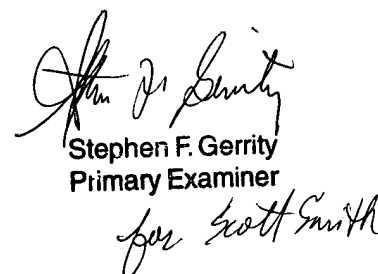 Stephen F. Gerrity
Stephen F. Gerrity
Primary Examiner
for Scott Smith